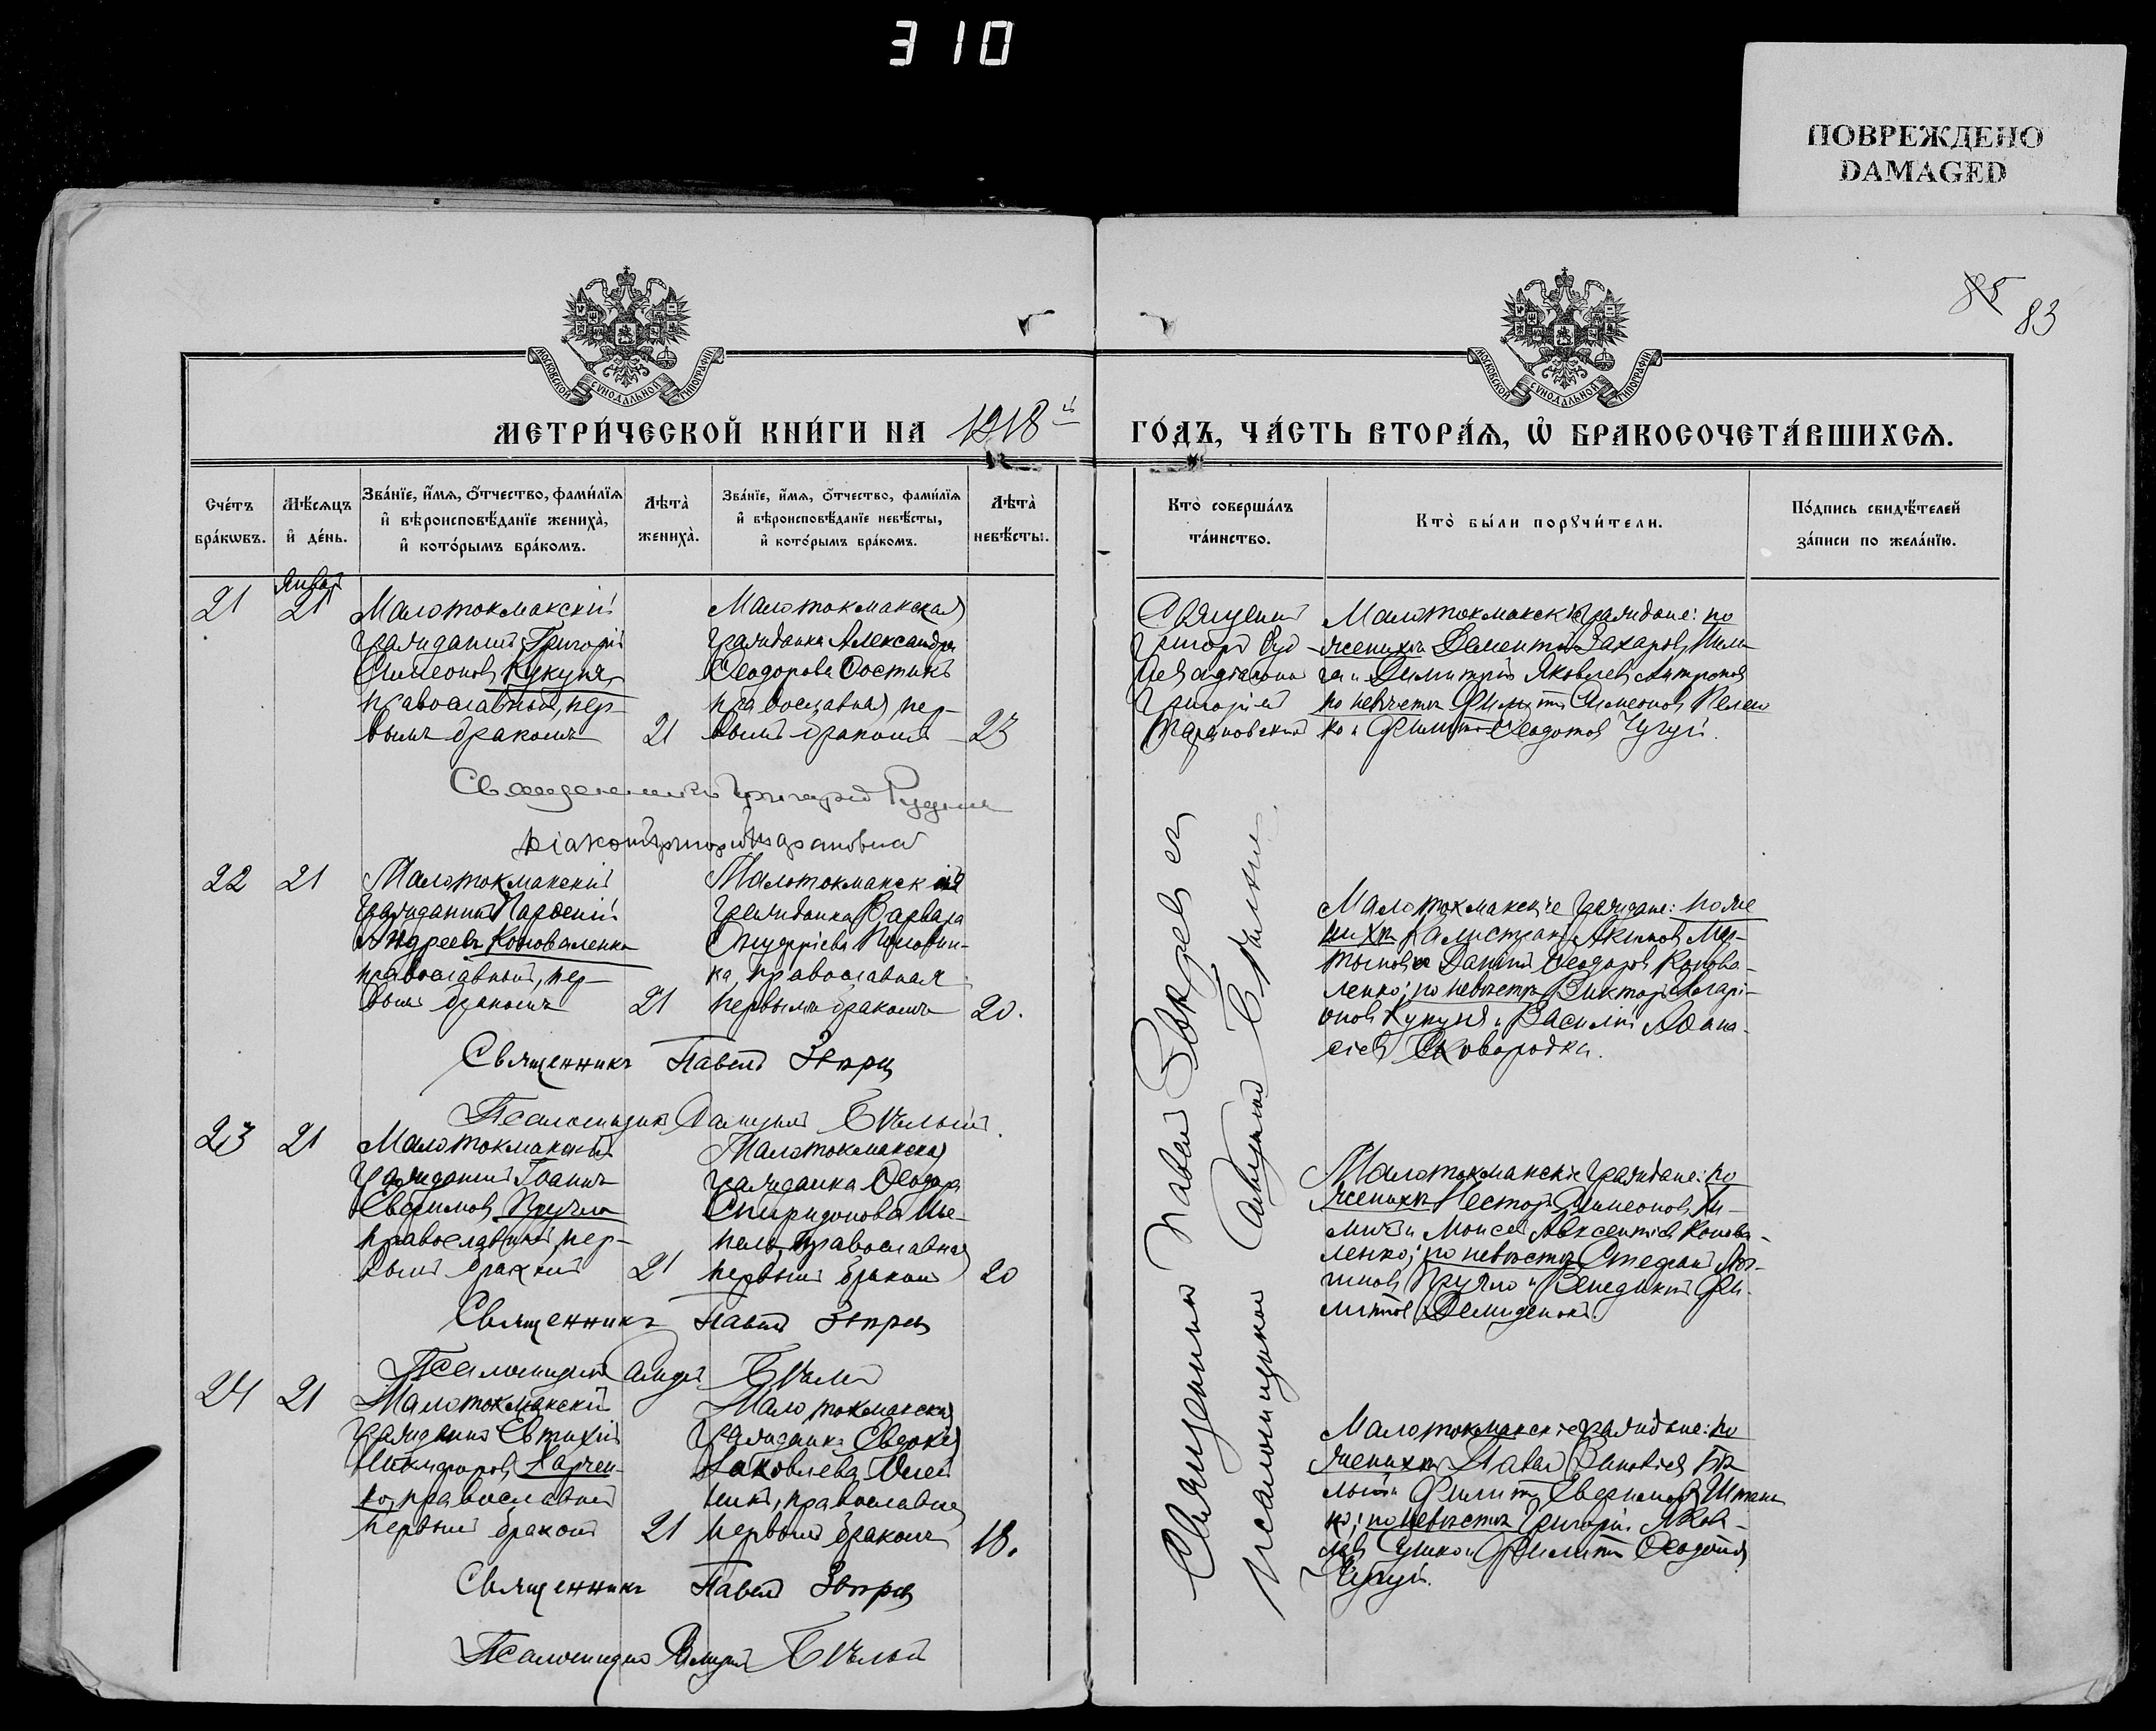 310
ПОВРЕЖДЕНО
DAMAGED
85 83
МОСКОВСКОЙ СѴНОДАЛЬНОЙ ТИПОГРАФІИ
МОСКОВСКОЙ СѴНОДАЛЬНОЙ ТИПОГРАФІИ
МЕТРИ́ЧЕСКОЙ КНИ́ГИ НА 1918 й
ГО́ДЪ, ЧА́СТЬ ВТОРА́Ѧ, Ѽ БРАКОСОЧЕТА́ВШИХСѦ.
Сче́тъ
бра́кѡвъ.
Мѣ́сѧцъ
и҆ де́нь.
Зва́нїе, и҆́мѧ, ѻ҆́тчество, фами́лїѧ
и҆ вѣроисповѣ́данїе жениха̀,
и҆ кото́рымъ бра́комъ.
Лѣта̀
жениха̀.
Зва́нїе, и҆́мѧ, ѻ҆́тчество, фами́лїѧ
и҆ вѣроисповѣ́данїе невѣ́сты,
и҆ кото́рымъ бра́комъ.
Лѣта̀
невѣ́сты.
Кто̀ соверша́лъ
та́инство.
Кто̀ бы́ли порꙋчи́тели.
По́дпись свидѣ́телей
за́писи по жела́нїю.
21
Январ
21
Малотокмакскій
гражданинъ Григорій
Симеоновъ Кукуня,
православный, пер-
вымъ бракомъ
21
Малотокмакская
гражданка Александра
Ѳеодорова Костикъ
православная, пер-
вымъ бракомъ
23
Григорій
Тарановскій
Малотокмакскіе граждане: по
женихѣ Дометій Захаровъ
и Димитрій Яковлевъ
по невѣстѣ Филиппъ Симеоновъ
ко и Филиппъ Ѳеодотовъ Чугуй.
Священникъ Григорій
Діаконъ Григорій Тарановскій
22
21
Малотокмакскій
гражданинъ Парѳеній
Андреевъ Коноваленко
православный, пер-
вымъ бракомъ
21
Малотокмакская
гражданка Варвара
Онуфріева Половин-
ка, православная
первымъ бракомъ
20.
Малотокмакскіе граждане: по же-
нихѣ Калистратъ Акимовъ Мар-
тыновъ и Даніилъ Ѳеодоровъ Конова-
ленко; по невѣстѣ Викторъ
Кукуня и Василій Аѳана-
сіевъ Сковородка.
Священникъ Павелъ Звѣревъ
Псаломщикъ Бѣлый.
23
21
Малотокмакскій
гражданинъ Іоаннъ
Евфимовъ Пругло
православный, пер-
вымъ бракомъ
21
Малотокмакская
гражданка Ѳеодора
Спиридонова Ше-
православная
первымъ бракомъ
20
Малотокмакскіе граждане: по
женихѣ Несторъ Симеоновъ
и Моисей Авксентіевъ Конова-
ленко; по невѣстѣ Стефанъ
Пругло и Венедиктъ Фи-
липповъ Демиденко.
Священникъ Павелъ Звѣревъ
Псаломщикъ Бѣлый
24
21
Малотокмакскій
гражданинъ Евтихій
Никифоровъ Харчен-
ко, православный
первымъ бракомъ
21
Малотокмакская
гражданка Евдокія
Іаковлева Олей-
никъ, православная
первымъ бракомъ
18.
Малотокмакскіе граждане: по
женихѣ Павелъ Бѣ-
лый и Филиппъ Евфимовъ
по невѣстѣ Григорій Яков-
левъ и Филиппъ Ѳеодотовъ
Чугуй.
Священникъ Павелъ Звѣревъ
Псаломщикъ Бѣлый
Священникъ Павелъ Звѣревъ
Псаломщикъ Бѣлый